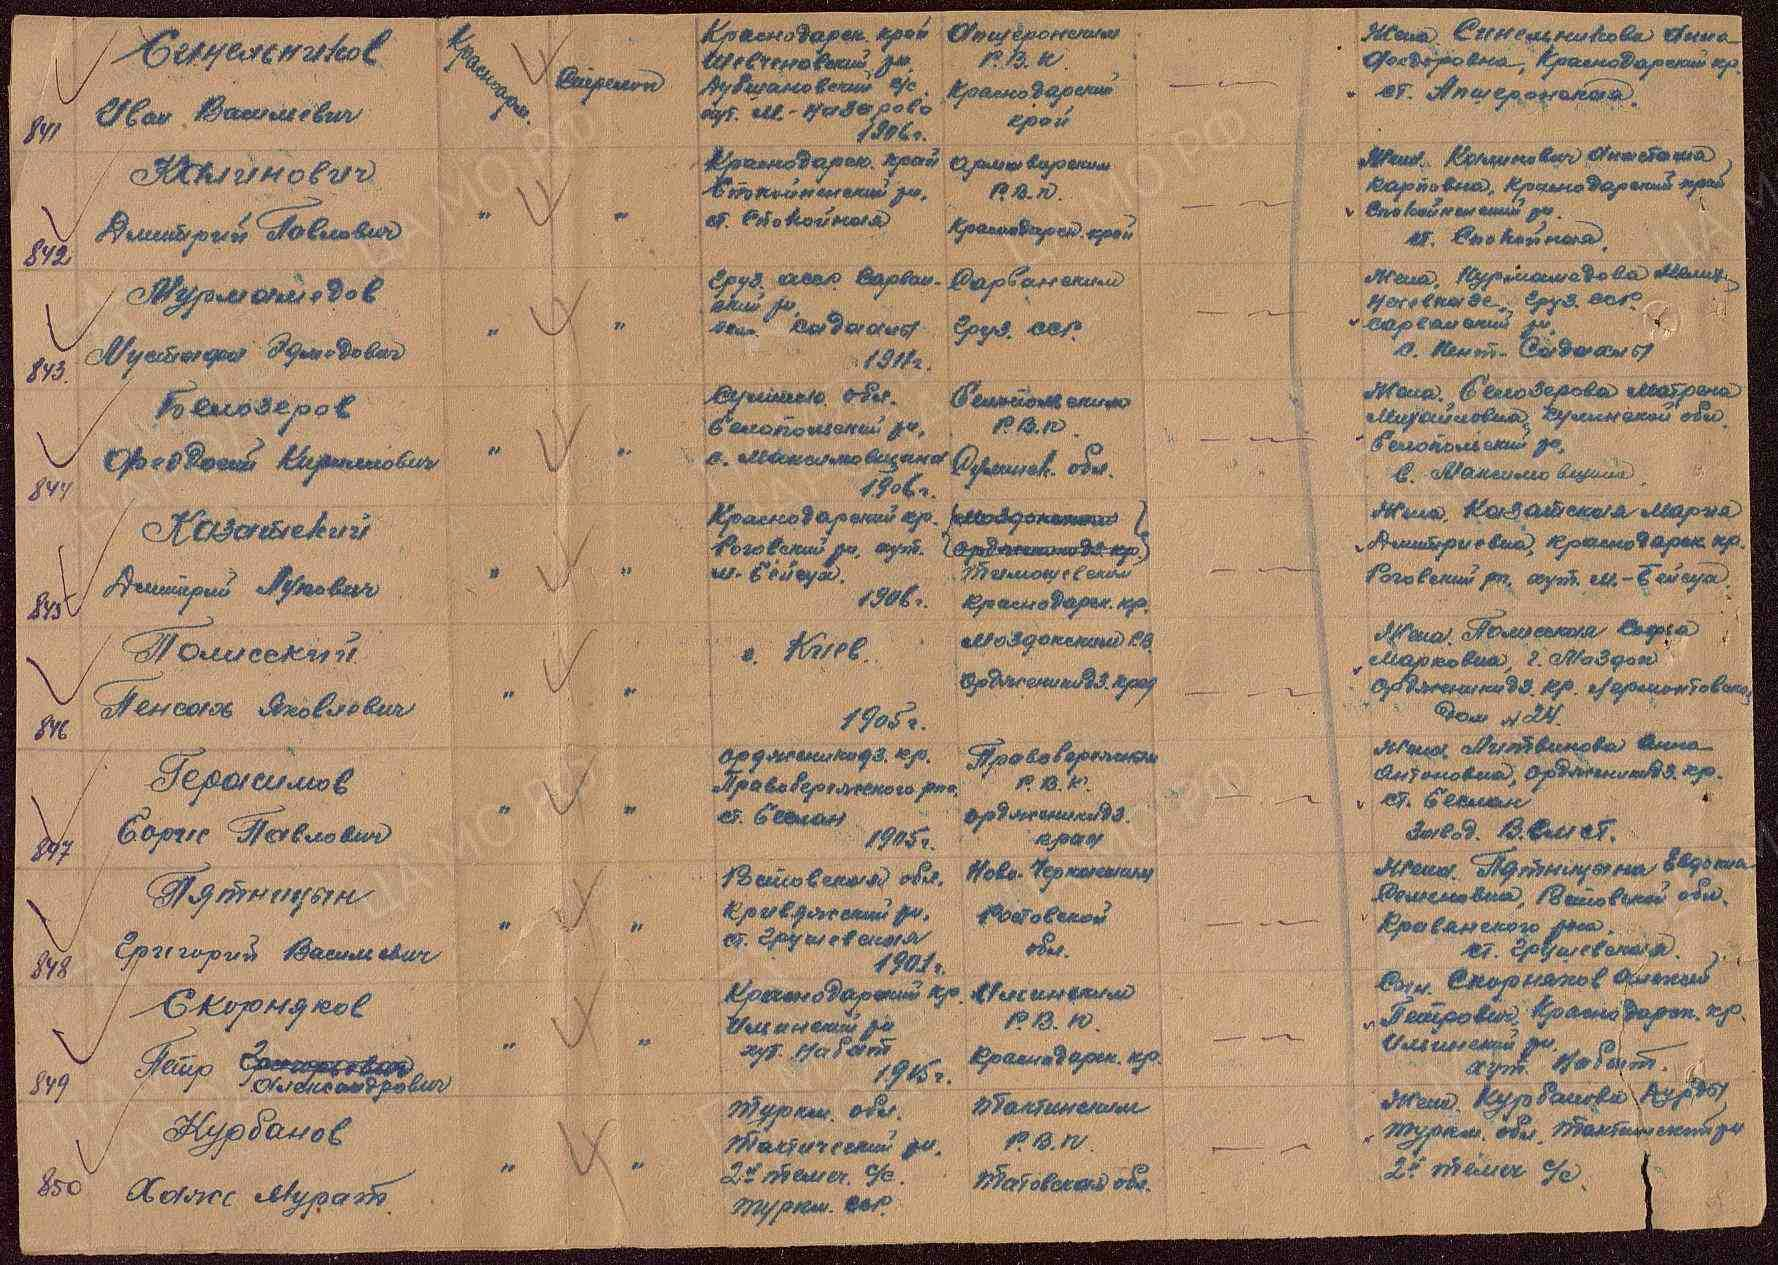 Синельников
Иван Васильевич
841
Красноарм.
Стрелок
Краснодарск. край
Шевченовский р-н,
Дубшановский с/с.
хут. М.-Назарово
1906 г.
Апшеронским
Р.В.К.
Краснодарский
край
Жена Синельникова Анна
Федоровна, Краснодарский кр.
ст. Апшеронская.
Калинович
Дмитрий Павлович
842
"
"
Краснодарск. край
Спокойненский р-н,
ст. Спокойная
Армавирским
Р.В.К.
Краснодарск. край
Жена. Калинович Анастасия
Карповна, Краснодарский край
Спокойненский р-н.
ст. Спокойная.
Нурмамедов
Мустафа
843.
"
"
Груз. ССР
ский р-н,
Садахлы
1911 г.
Сарванским
Груз. ССР.
Жена, Нурмамедова
Груз. ССР.
Сарванский р-н,
с. Кент-Садахлы
Белозеров
Феодосий Кириллович
844
"
"
обл.
Белопольский р-н,
с. Максимовщина
1906 г.
Белопольским
Р.В.К.
Сумск. обл.
Жена. Белозерова Матрена
Михайловна, обл.
Белопольский р-н,
с. Максимовщина.
Казатский
Дмитрий Лукович
845
"
"
Краснодарский кр.
Роговский р-н, хут.
М.-Бейсуг.
1906 г.
Моздокским
Орджоникидз. кр.
Тимошевским
Краснодарск. кр.
Жена, Казатская Мария
Дмитриевна, Краснодарск. кр.
Роговский р-н. хут. М.-Бейсуг.
Полисский
Яковлевич
846
"
"
г. Киев.
1905 г.
Моздокским
Орджоникидз. край
Жена. Полисская Софья
Марковна, г. Моздок
Орджоникидз. кр. Лермонтовская,
дом № 24.
Герасимов
Борис Павлович
847
"
"
Орджоникидз. кр.
Правобережного р-на,
ст. Беслан
1905 г.
Правобережным
Р.В.К.
Орджоникидз.
край
Жена. Литвинова Анна
Антоновна, Орджоникидз. кр.
ст. Беслан
завод.
Пятницын
Григорий Васильевич
848
"
"
Ростовская обл.
Кривянский р-н.
ст. Грушевская
1901 г.
Ново-Черкасским
Ростовской
обл.
Жена. Пятницына Евдокия
Семеновна, Ростовской обл.
р-на.
ст. Грушевская.
Скорняков
Петр Григорьевич
Александрович
849
"
"
Краснодарский кр.
Ильинский р-н
хут. Набат
1915 г.
Ильинским
Р.В.К.
Краснодарск. кр.
Сын. Скорняков Алексей
Петрович, Краснодарск. кр.
Ильинский р-н.
хут. Набат.
Курбанов
Мурат.
850
"
"
Туркм. обл.
р-н.
с/с.
Туркм. ССР.
Тахтинским
Р.В.К.
обл.
Жена. Курбанова
Туркм. обл. р-н
с/с.